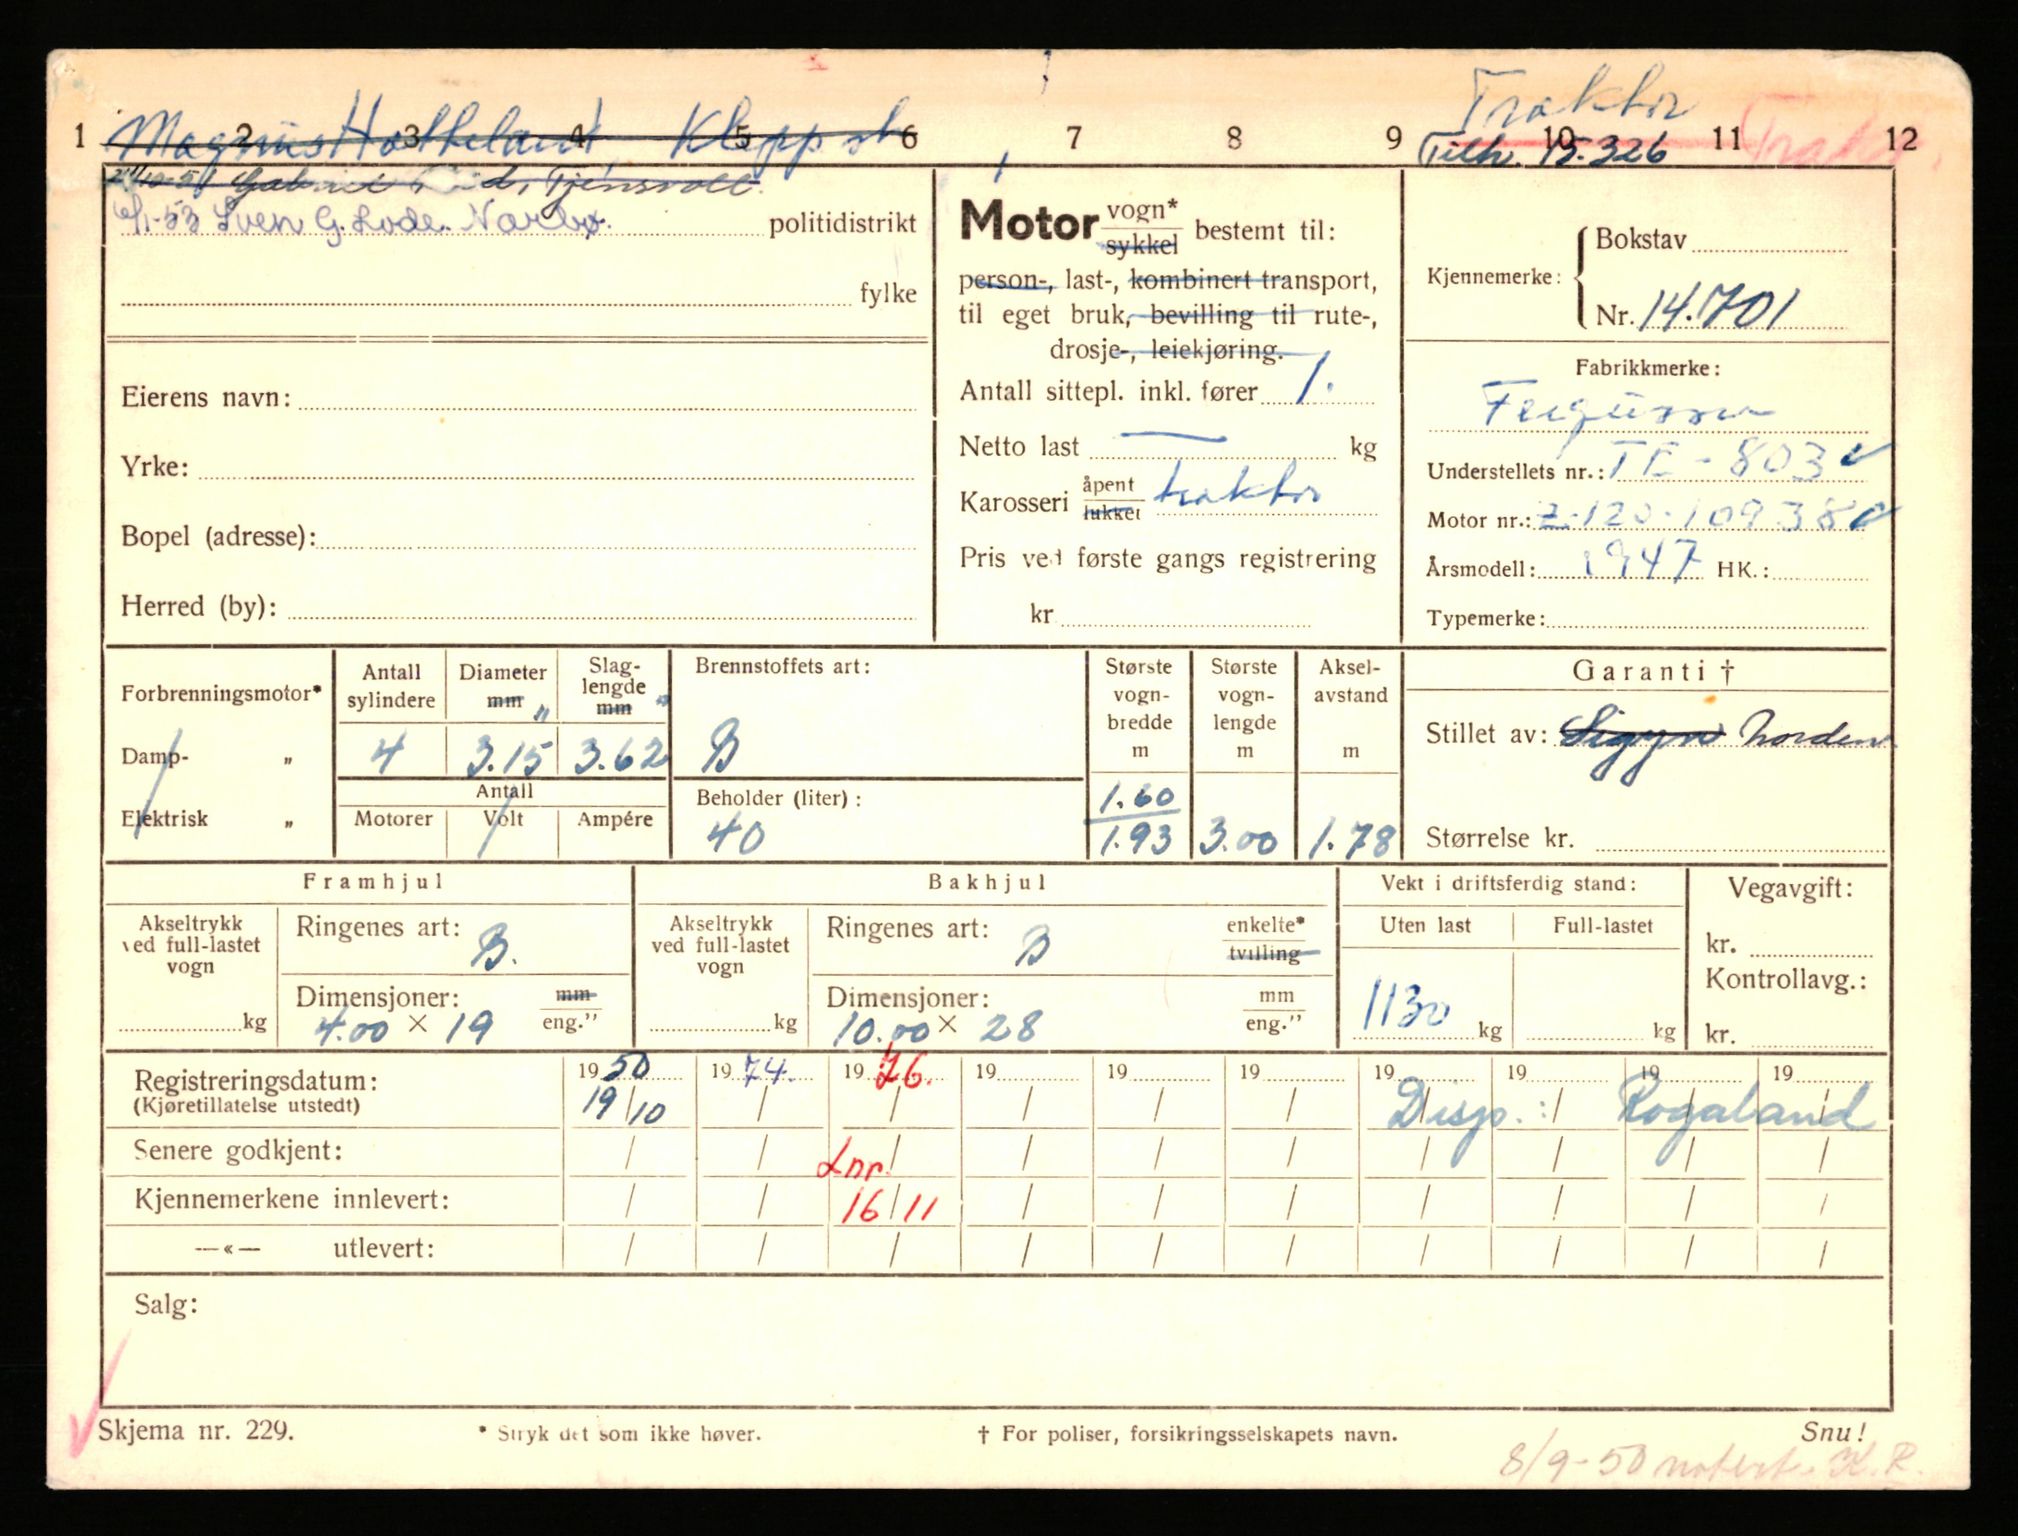 Traktor
1 2 3 4 5 6 7 8 9 10 11 12
Magnus Kleppst
Tilh. 15.326
Trakt.
Gabriel Tjensvoll
6/1-53 Sven G. Lode. Nærbø. politidistrikt
fylke
Eierens navn:
Yrke:
Bopel (adresse):
Herred (by):
Motor vogn* sykkel bestemt til:
person-, last-, kombinert transport,
til eget bruk, bevilling til rute-,
drosje-, leiekjøring.
Antall sittepl. inkl. fører 1.
Netto last — kg
Karosseri åpent lukket traktor
Pris ved første gangs registrering
kr
Kjennemerke: Bokstav
Nr. 14.701
Fabrikkmerke:
Ferguson
Understellets nr.: TE-803
Motor nr.: Z-120-10938
Årsmodell: 1947 HK.:
Typemerke:
Forbrenningsmotor*
Damp- „
Elektrisk „
Antall sylindere
4
Diameter mm "
3.15
Slaglengde mm "
3.62
Antall
Motorer Volt Ampére
Brennstoffets art:
B
Beholder (liter):
40
Største vogn-bredde m
1.60
1.93
Største vogn-lengde m
3.00
Aksel-avstand m
1.78
Garanti †
Stillet av: Sigyn Norden
Størrelse kr.
Framhjul
Akseltrykk ved full-lastet vogn
kg
Ringenes art: B.
Dimensjoner: mm eng."
4.00 × 19
Bakhjul
Akseltrykk ved full-lastet vogn
kg
Ringenes art: B enkelte* tvilling
Dimensjoner: mm eng."
10.00 × 28
Vekt i driftsferdig stand:
Uten last Full-lastet
1130 kg kg
Vegavgift:
kr.
Kontrollavg.:
kr.
Registreringsdatum: 1950 1974. 1976. 19 19 19 19 19 19 19
(Kjøretillatelse utstedt) 19/10 / / / / / / / / /
Disp.: Rogaland
Senere godkjent: / / Lnr. / / / / / / / /
Kjennemerkene innlevert: / / 16/11 / / / / / / /
—«— utlevert: / / / / / / / / / /
Salg:
Skjema nr. 229. * Stryk det som ikke høver. † For poliser, forsikringsselskapets navn. Snu!
8/9-50 notert. K.R.